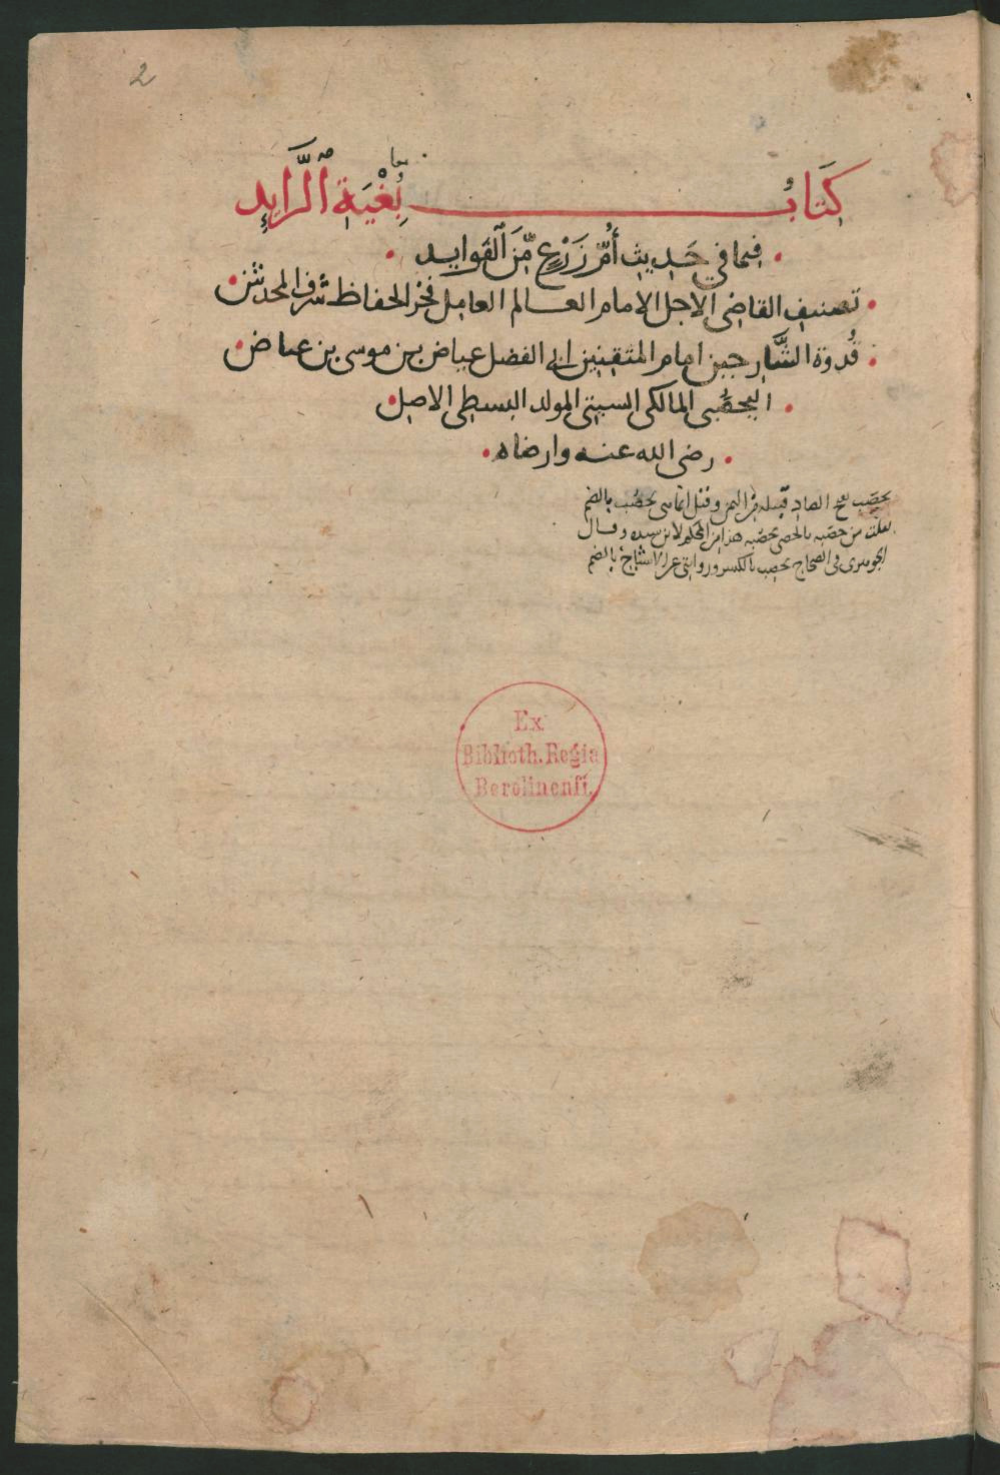 2
كِتَابُ بُغْيَةِ ٱلرَّايِدِ
معا
فيما في حَديثِ أُمِّ زَرْعٍ مِّنَ ٱلفَوايِد
تصنيف القاضي الاجل الامام العالم العامل فخر الحفاظ شرف المحدثين
قُدوة الشَّارحين امام المتقنين ابي الفضل عياض بن موسى بن عياض
اليحصبي المالكي السبتي المولد البسطي الاصل
رضي الله عنه وارضاه
يحصب بفتح الصاد قبيلة من اليمن وقيل انما هي يحصُب بالضم
نقلت من حصبه بالحصى يحصبه هذا من المحكم لابن سيده وقال
الجوهري في الصحاح يحصب بالكسر وروايتي عن الاشياخ بالضم
Ex
Biblioth. Regia
Berolinensi.